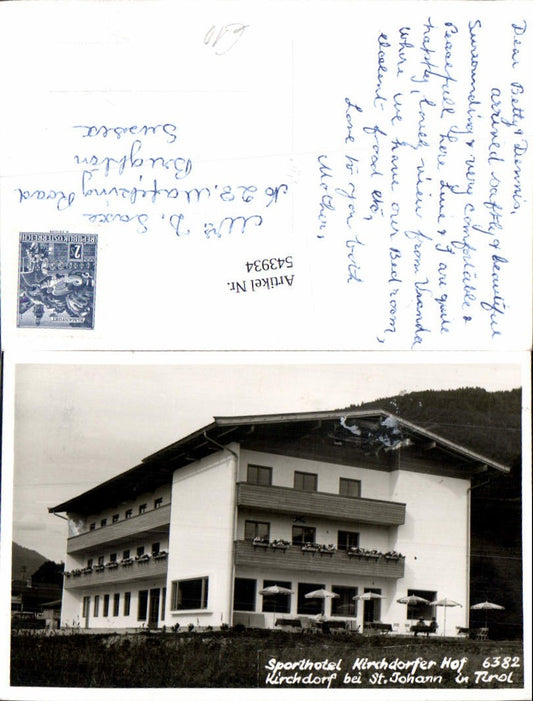 Dear Betty & Dennis,
arrived saftly & beautiful
Surrounding & very comfortable &
Peacefull here Line & I are quite
happy, lovely view from Varanda
where we have our Bedroom,
excelent food etc,
Love to you both
Mother,
Mrs D. Saxe
No 22. Mafeking Road
Brighton
Sussex
Artikel Nr.
543934
2
REPUBLIK ÖSTERREICH
Sporthotel Kirchdorfer Hof 6382
Kirchdorf bei St. Johann in Tirol